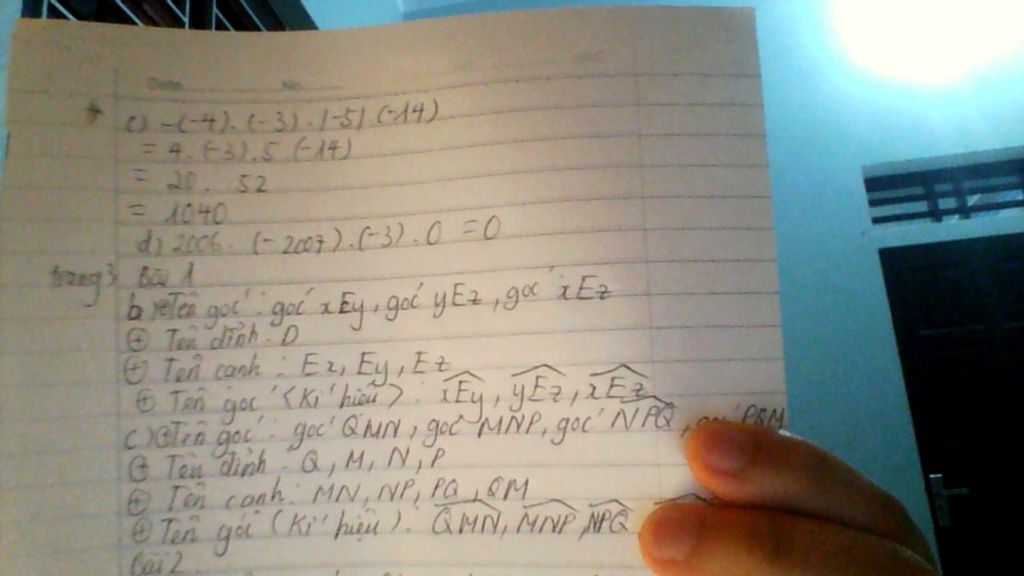 Date No
c) -(-4).(-3).|-5|(-14)
= 4.(-3).5.(-14)
= 20. 52
= 1040
d) 2006.(-2007).(-3).0 = 0
trang 3 Bài 1
b) ⊕ Tên góc: góc xEy, góc yEz, góc xEz
⊕ Tên đỉnh: D
⊕ Tên cạnh: Ex, Ey, Ez
⊕ Tên góc (Kí hiệu): xEy, yEz, xEz
c) ⊕ Tên góc: góc QMN, góc MNP, góc NPQ, góc PQM
⊕ Tên đỉnh: Q, M, N, P
⊕ Tên cạnh: MN, NP, PQ, QM
⊕ Tên góc (Kí hiệu): QMN, MNP, NPQ
Bài 2